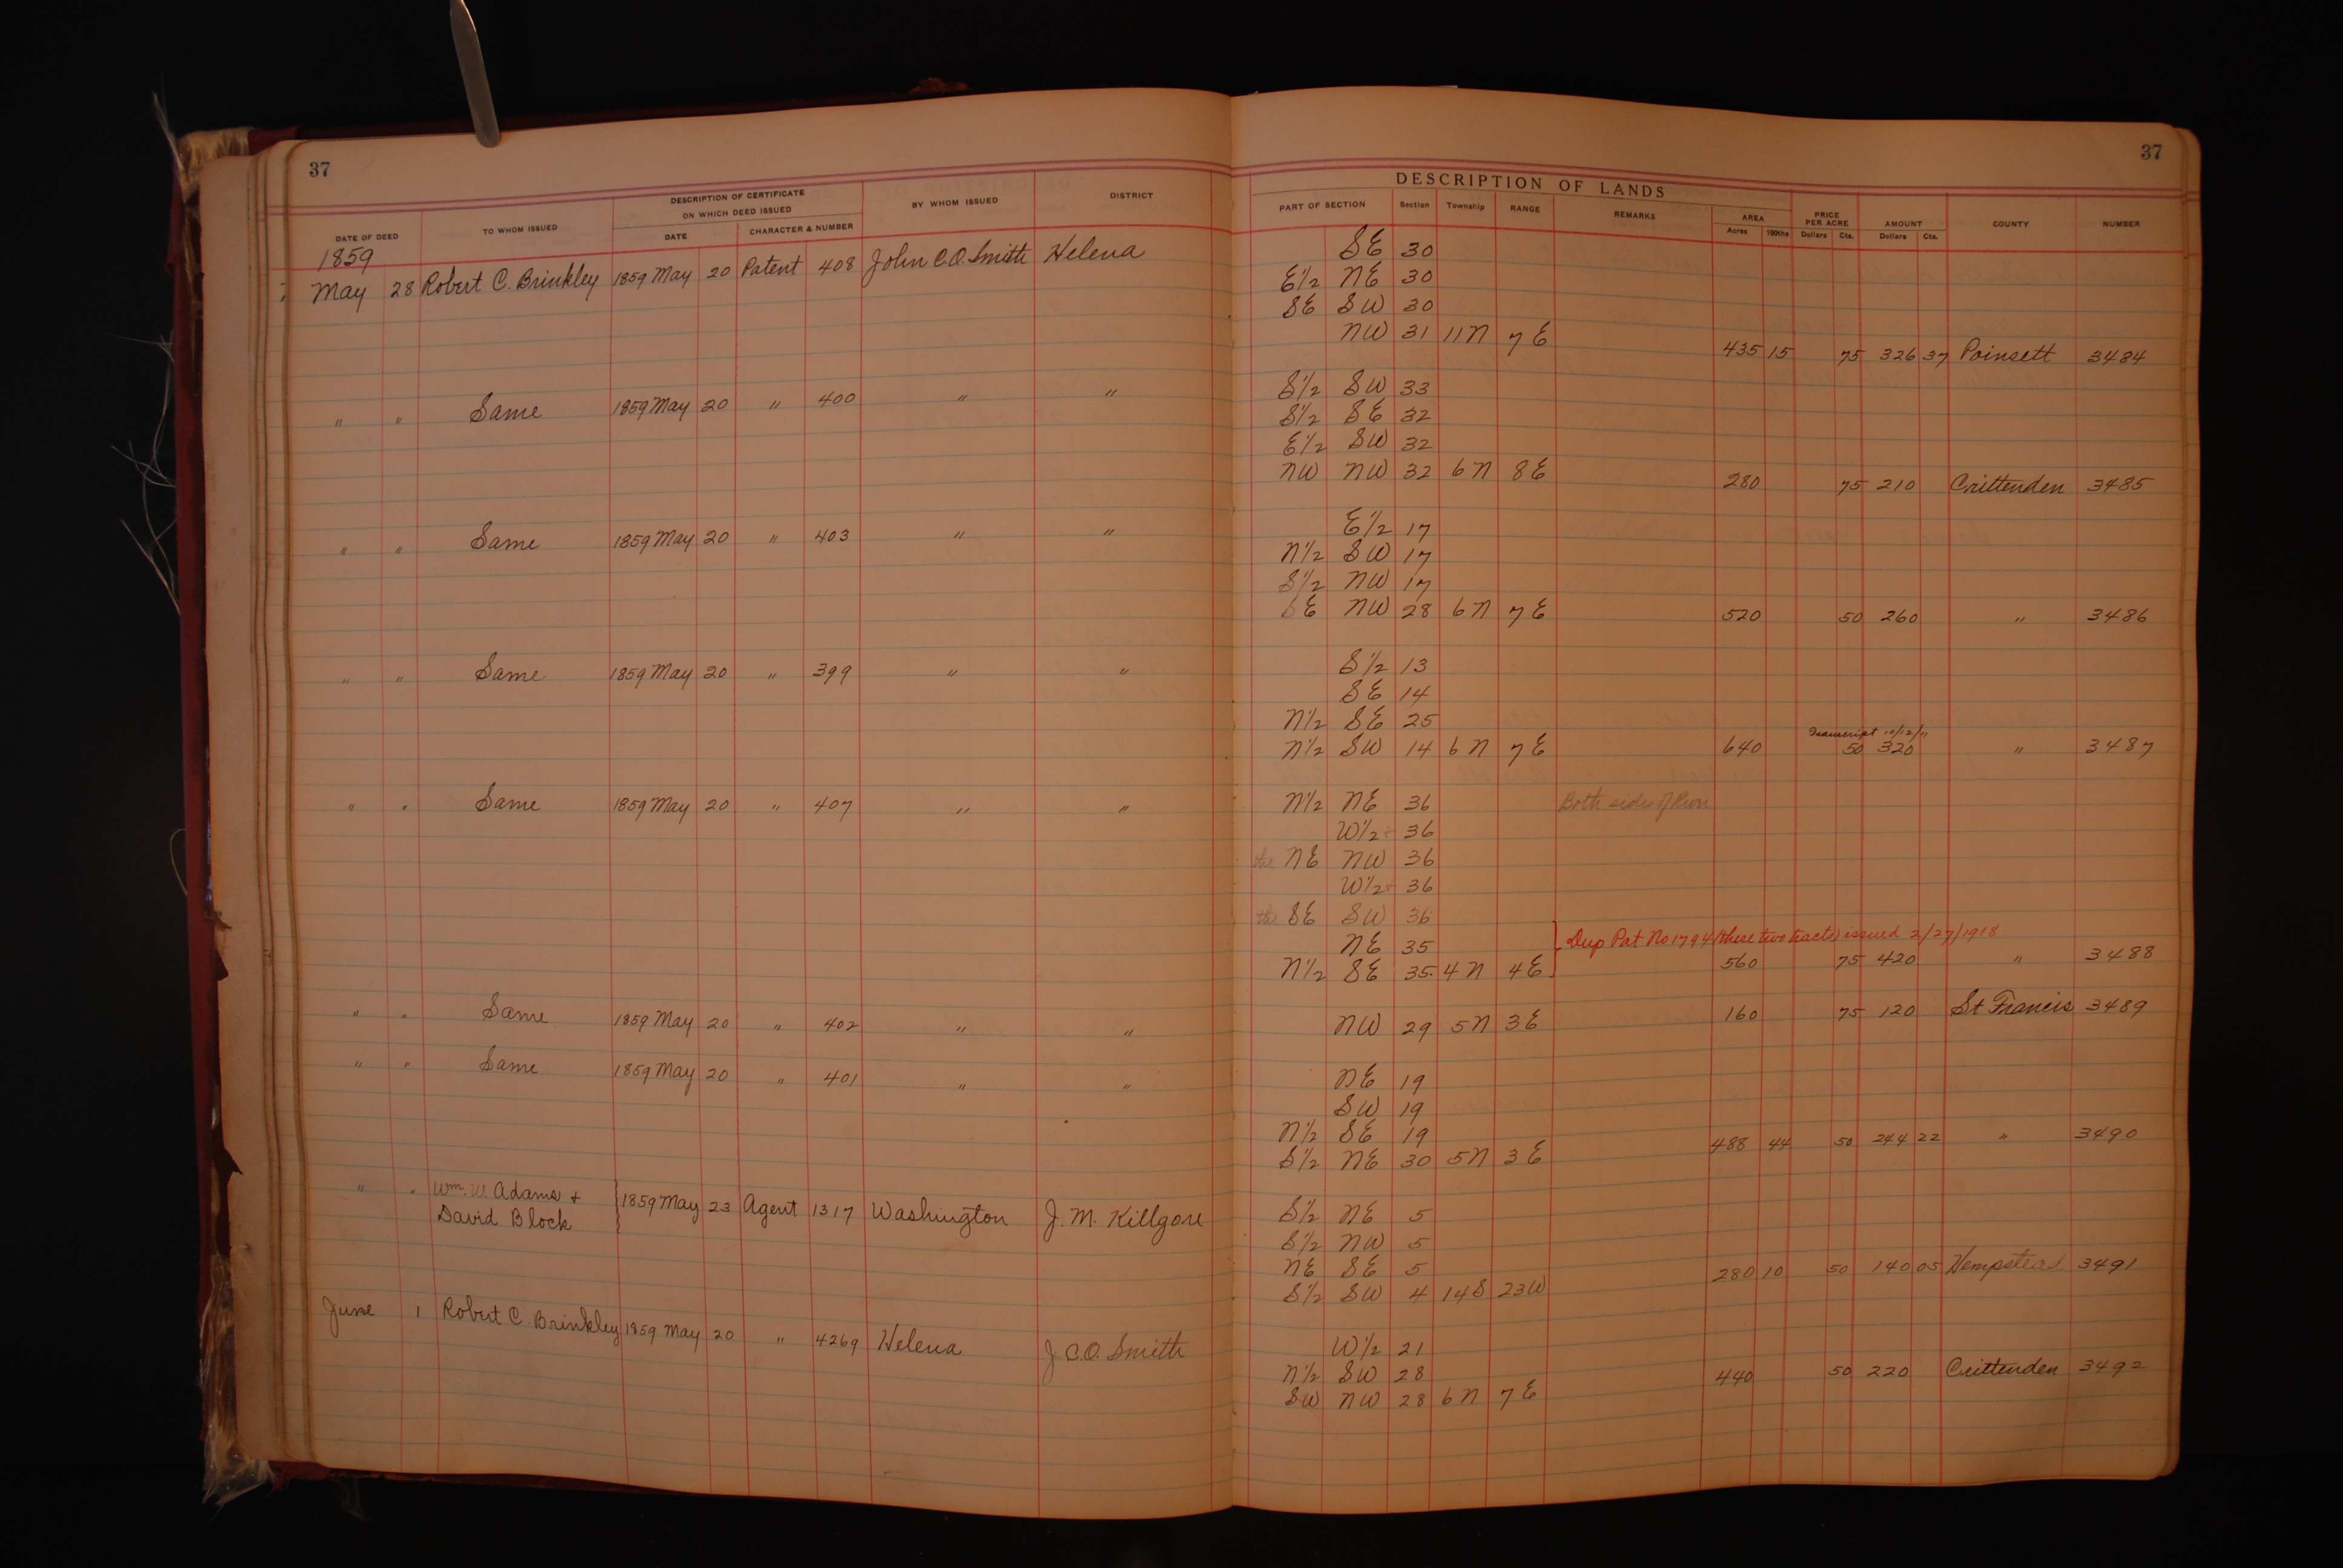 37
37
DESCRIPTION OF LANDS
DATE OF DEED TO WHOM ISSUED DESCRIPTION OF CERTIFICATE ON WHICH DEED ISSUED DATE CHARACTER & NUMBER BY WHOM ISSUED DISTRICT PART OF SECTION Section Township RANGE REMARKS AREA Acres 100ths PRICE PER ACRE Dollars Cts. AMOUNT Dollars Cts. COUNTY NUMBER
1859
May 28 Robert C. Brinkley 1859 May 20 Patent 408 John C.O. Smith Helena SE 30
E½ NE 30
SE SW 30
NW 31 11N 7E 435 15 75 326 37 Poinsett 3484
" " Same 1859 May 20 " 400 " " S½ SW 33
S½ SE 32
E½ SW 32
NW NW 32 6N 8E 280 75 210 Crittenden 3485
" " Same 1859 May 20 " 403 " " E½ 17
N½ SW 17
S½ NW 17
SE NW 28 6N 7E 520 50 260 " 3486
" " Same 1859 May 20 " 399 " " S½ 13
SE 14
N½ SE 25
Transcript 10/12/11
N½ SW 14 6N 7E 640 50 320 " 3487
" " Same 1859 May 20 " 407 " " N½ NE 36 Both sides of
W½ + 36
the NE NW 36
W½ + 36
the SE SW 36
NE 35 Dup Pat No 1794 (these two tracts) issued 2/27/1918
N½ SE 35 4N 4E 560 75 420 " 3488
" " Same 1859 May 20 " 402 " " NW 29 5N 3E 160 75 120 St Francis 3489
" " Same 1859 May 20 " 401 " " NE 19
SW 19
N½ SE 19
S½ NE 30 5N 3E 488 44 50 244 22 " 3490
" " Wm. W. Adams +
David Block 1859 May 23 Agent 1317 Washington J. M. Killgore S½ NE 5
S½ NW 5
NE SE 5
S½ SW 4 14S 23W 280 10 50 140 05 Hempstead 3491
June 1 Robert C. Brinkley 1859 May 20 " 4269 Helena J C.O. Smith W½ 21
N½ SW 28
SW NW 28 6N 7E 440 50 220 Crittenden 3492